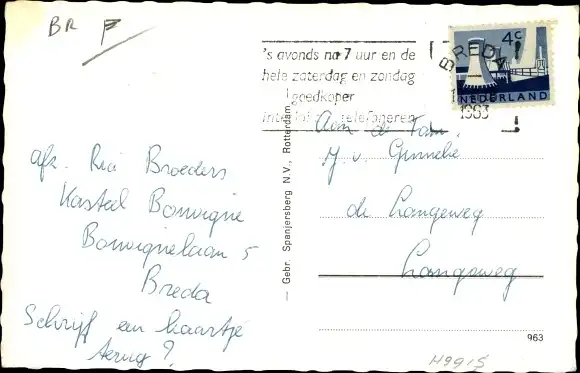 BR F
's avonds na 7 uur en de
hele zaterdag en zondag
goedkoper
telefoneren
4c
NEDERLAND
BREDA
1963
afz. Ria Broeders
Kasteel Bouvigne
Bouvignelaan 5
Breda
Schrijf een kaartje
terug?
— Gebr. Spanjersberg N.V., Rotterdam
Aan de Fam.
de Langeweg
Langeweg
963